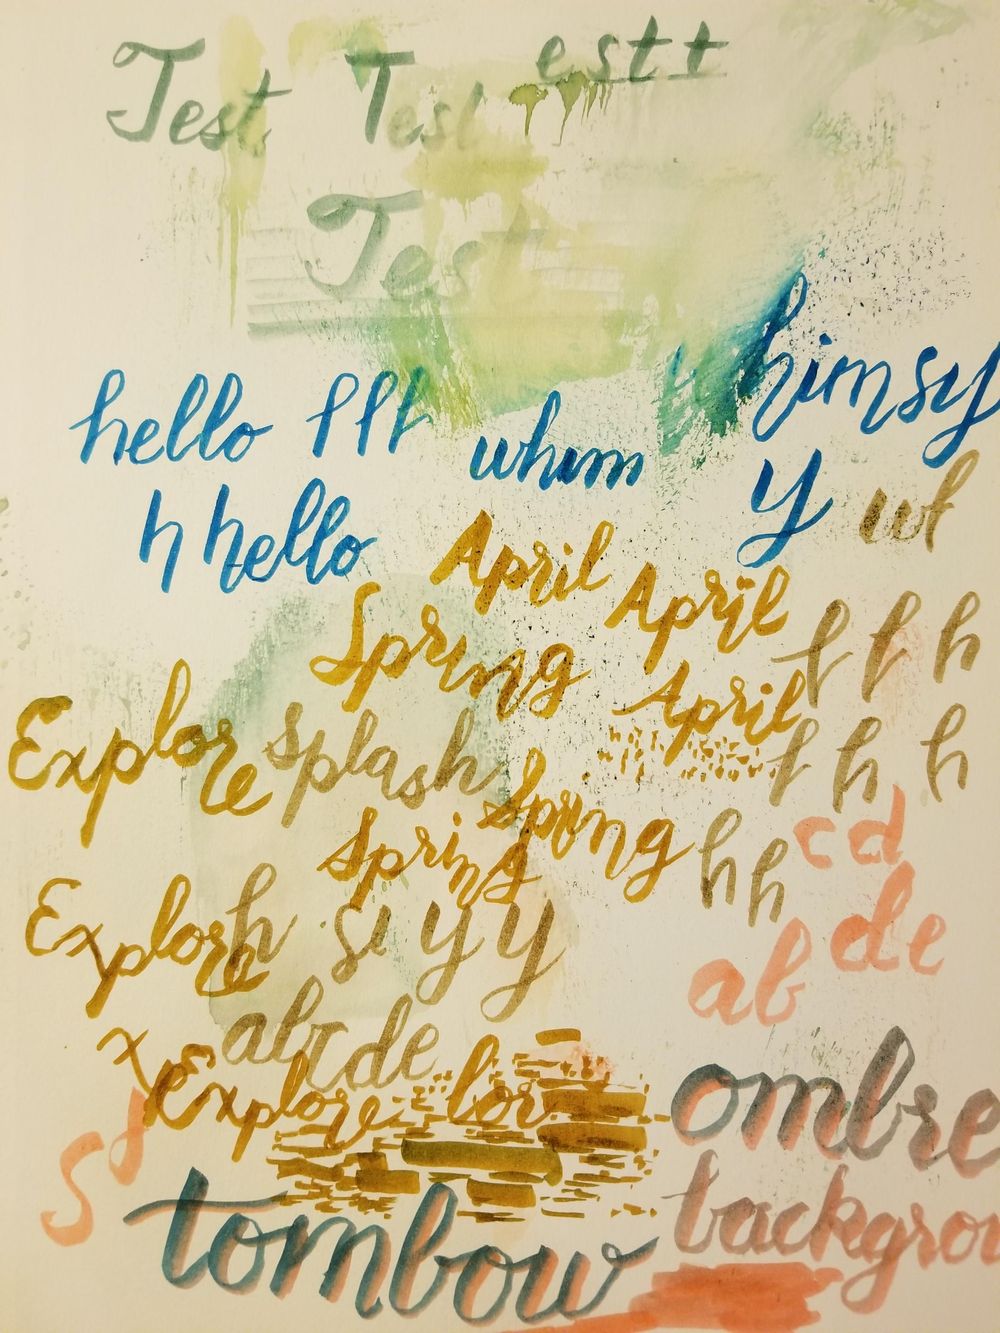 Test Test estt
Test
hello
whim
whimsy
h hello
y
April
April
Spring
April
h
h
Explore
splash
h h
Spring
Spring
h h
c d
Explore
h
y y
de
ab
abcde
x
Explore
lor
ombre
S
tombow
backgrou